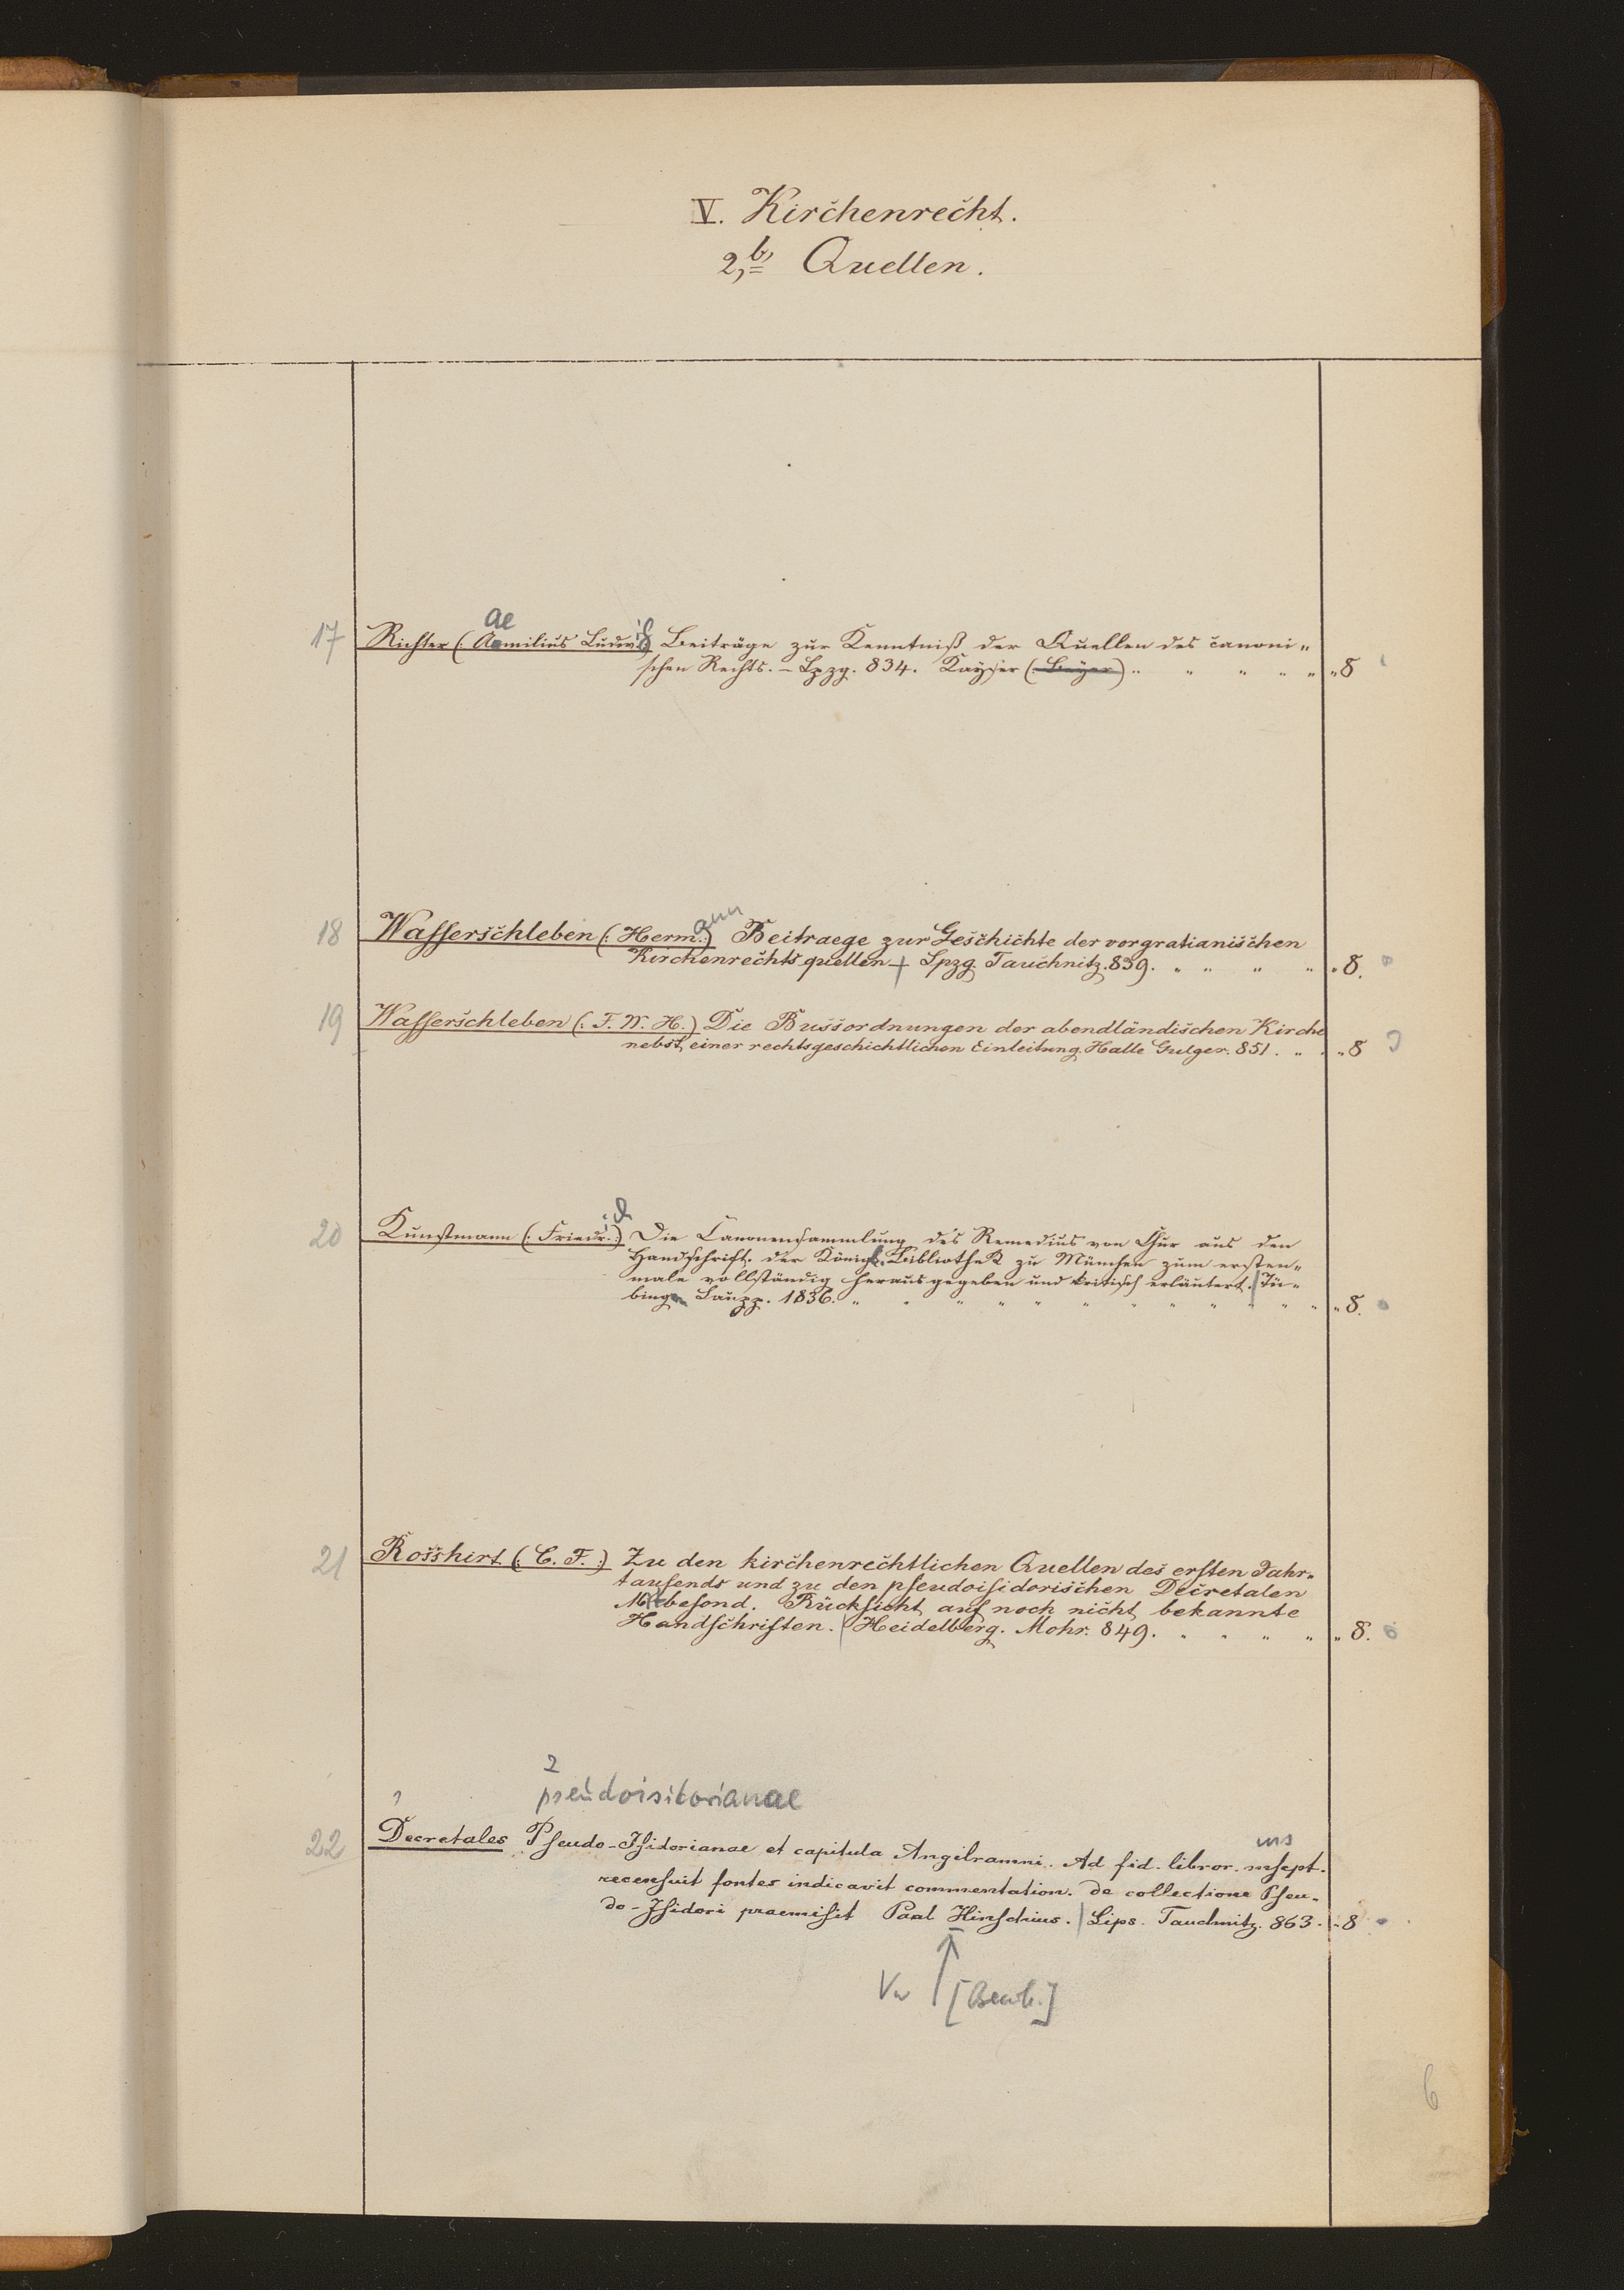 V. Kirchenrecht.
2, b, Quellen.
ae
17 Richter (: Aemilius Ludwig Beiträge zur Kenntniß der Quellen des canoni„
schen Rechts. – Lpzg. 834. Kayser (Bayer) „ „ „ „ „ „ 8
ann
18 Wasserschleben (: Herm. :) Beitraege zur Geschichte der vorgratianischen
Kirchenrechtsquellen + Lpzg. Tauchnitz. 839. „ „ „ „ „ 8.
19 Wasserschleben (: F. W. H.) Die Bussordnungen der abendländischen Kirche
nebst einer rechtsgeschichtlichen Einleitung. Halle Gulger. 851. „ . „ 8
20 Kunstmann (: Friedr. :) Die Canonensammlung des Remedius von Chur aus den
Handschrift. der Königl. Bibliothek zu München zum ersten„
male vollständig herausgegeben und kritisch erläutert. | Tü„
bingen Laupp. 1836. „ „ „ „ „ „ „ „ „ „ „ „ „ 8.
21 Rosshirt (: C. F. :) Zu den kirchenrechtlichen Quellen des ersten Jahr„
tausends und zu den pseudoisidorischen Decretalen
Mit besond. Rücksicht auf noch nicht bekannte
Handschriften. | Heidelberg. Mohr. 849. „ „ „ „ „ 8.
2
pseudoisidorianae
22 Decretales Pseudo-Isidorianae et capitula Angilramni. Ad fid. libror. mscpt.
recensuit fontes indicavit commentation. de collectione Pseu„
do-Isidori praemisit Paul Hinschius. | Lips. Tauchnitz. 863. „ 8
Vw [Bearb.]
6